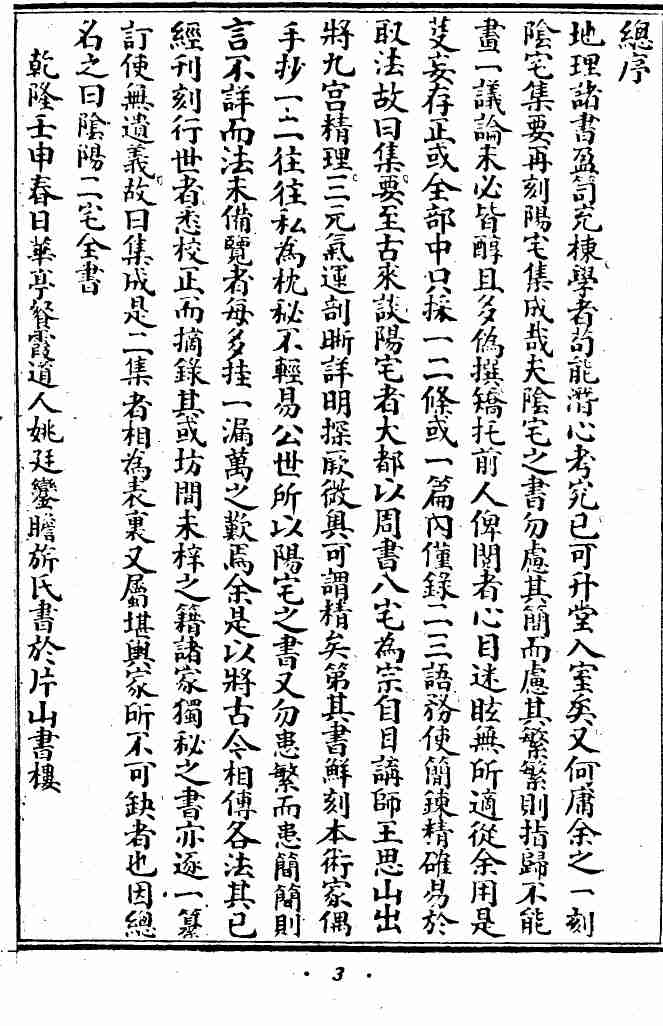 總序
地理諸書盈笥充棟學者苟能潛心考究已可升堂入室矣又何庸余之一刻
陰宅集要再刻陽宅集成哉夫陰宅之書勿慮其簡而慮其繁繁則指歸不能
畫一議論未必皆醇且多偽撰矯托前人俾閱者心目迷眩無所適從余用是
芟妄存正或全部中只採一二條或一篇內僅錄二三語務使簡鍊精確易於
取法故曰集要至古來談陽宅者大都以周書八宅為宗自目講師王思山出
將九宮精理三元氣運剖晰詳明探厥微奧可謂精矣第其書鮮刻本術家偶
手抄一二往往私為枕秘不輕易公世所以陽宅之書又勿患繁而患簡簡則
言不詳而法未備覽者每多挂一漏萬之歎焉余是以將古今相傳各法其已
經刊刻行世者悉校正而摘錄其或坊間未梓之籍諸家獨秘之書亦逐一纂
訂使無遺義故曰集成是二集者相為表裏又屬堪輿家所不可缺者也因總
名之曰陰陽二宅全書
乾隆壬申春日華亭餐霞道人姚廷鑾瞻旂氏書於片山書樓
· 3 ·